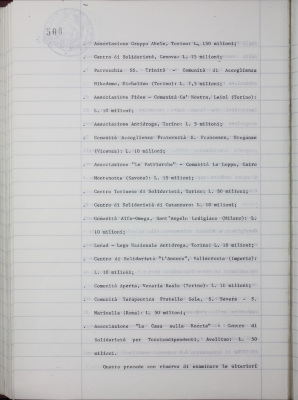 500
. Associazione Gruppo Abele, Torino: L. 150 milioni;
. Centro di Solidarietà, Genova: L. 75 milioni;
. Parrocchia SS. Trinità - Comunità di Accoglienza
Nikodemo, Nichelino (Torino): L. 7,5 milioni;
. Associazione - Comunità Ca' Nostra, (Torino):
L. 10 milioni;
. Associazione Antidroga, Torino: L. 5 milioni;
. Comunità Accoglienza Fraternità S. Francesco, Breganze
(Vicenza): L. 10 milioni;
. Associazione "Le Patriarche" - Comunità La Loppa, Cairo
Montenotte (Savona): L. 10 milioni;
. Centro Torinese di Solidarietà, Torino: L. 50 milioni;
. Centro di Solidarietà di Catanzaro: L. 50 milioni;
. Comunità Alfa-Omega, Sant'Angelo Lodigiano (Milano): L.
10 milioni;
. - Lega Nazionale Antidroga, Torino: L. 10 milioni;
. Centro di Solidarietà "L'Ancora", Vallecrosia (Imperia):
L. 10 milioni;
. Comunità Aperta, Venaria Reale (Torino): L. 15 milioni;
. Comunità Terapeutica Fratello Sole, S. Severa - S.
Marinella (Roma): L. 30 milioni;
. Associazione "La Casa sulla Roccia" - Centro di
Solidarietà per Tossicodipendenti, Avellino: L. 50
milioni.
Quanto precede con riserva di esaminare le ulteriori